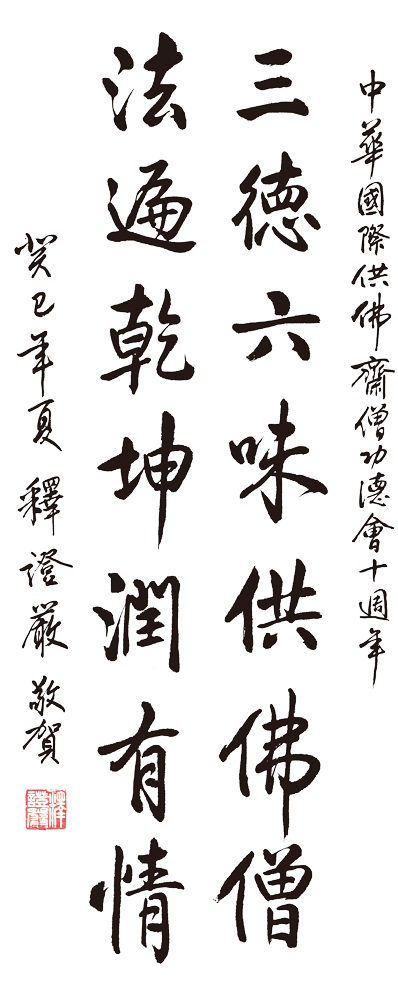 中華國際供佛齋僧功德會十週年
三德六味供佛僧
法遍乾坤潤有情
癸巳年夏 釋證嚴 敬賀